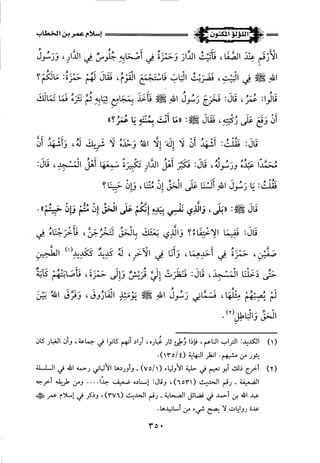 اللؤلؤ المكنون
إسلام عمر بن الخطاب
الأرقم عند الصفا، فأتيت الدار وحمزة في أصحابه جلوس في الدار، ورسول
الله ﷺ في البيت، فضربت الباب فاستجمع القوم، فقال لهم حمزة: مالكم؟
قالوا: عمر، قال: فخرج رسول الله ﷺ فأخذ بمجامع ثيابه ثم نثره فما تمالك
أن وقع على ركبتيه، فقال ﷺ: «ما أنت بمنته يا عمر؟»
قال: فقلت: أشهد أن لا إله إلا الله وحده لا شريك له، وأشهد أن
محمدا عبده ورسوله، قال: فكبر أهل الدار تكبيرة سمعها أهل المسجد، قال:
فقلت: يا رسول الله ألسنا على الحق إن متنا، وإن حيينا؟
قال ﷺ: «بلى، والذي نفسي بيده إنكم على الحق إن متم وإن حييتم».
قال: ففيما الاختفاء؟ والذي بعثك بالحق لتخرجن، فأخرجناه في
صفين، حمزة في أحدهما، وأنا في الآخر، له كديد ككديد(١) الطحين
حتى دخلنا المسجد، قال: فنظرت إلي قريش وإلى حمزة، فأصابتهم كآبة
لم يصبهم مثلها، فسماني رسول الله ﷺ يومئذ الفاروق، وفرق الله بين
الحق والباطل(٢).
(١) الكديد: التراب الناعم، فإذا وطئ ثار غباره، أراد أنهم كانوا في جماعة، وأن الغبار كان
يثور من مشيهم. انظر النهاية (١٣٥/٤).
(٢) أخرج ذلك أبو نعيم في حلية الأولياء (٧٥/١) ـ وأوردها الألباني رحمه الله في السلسلة
الضعيفة ـ رقم الحديث (٦٥٣١)، وقال: إسناده ضعيف جدا.... ومن طريقه أخرجه
عبد الله بن أحمد في فضائل الصحابة ـ رقم الحديث (٣٧٦)، وذكر في إسلام عمر ﷺ
عدة روايات لا يصح شيء من أسانيدها.
٣٥٠